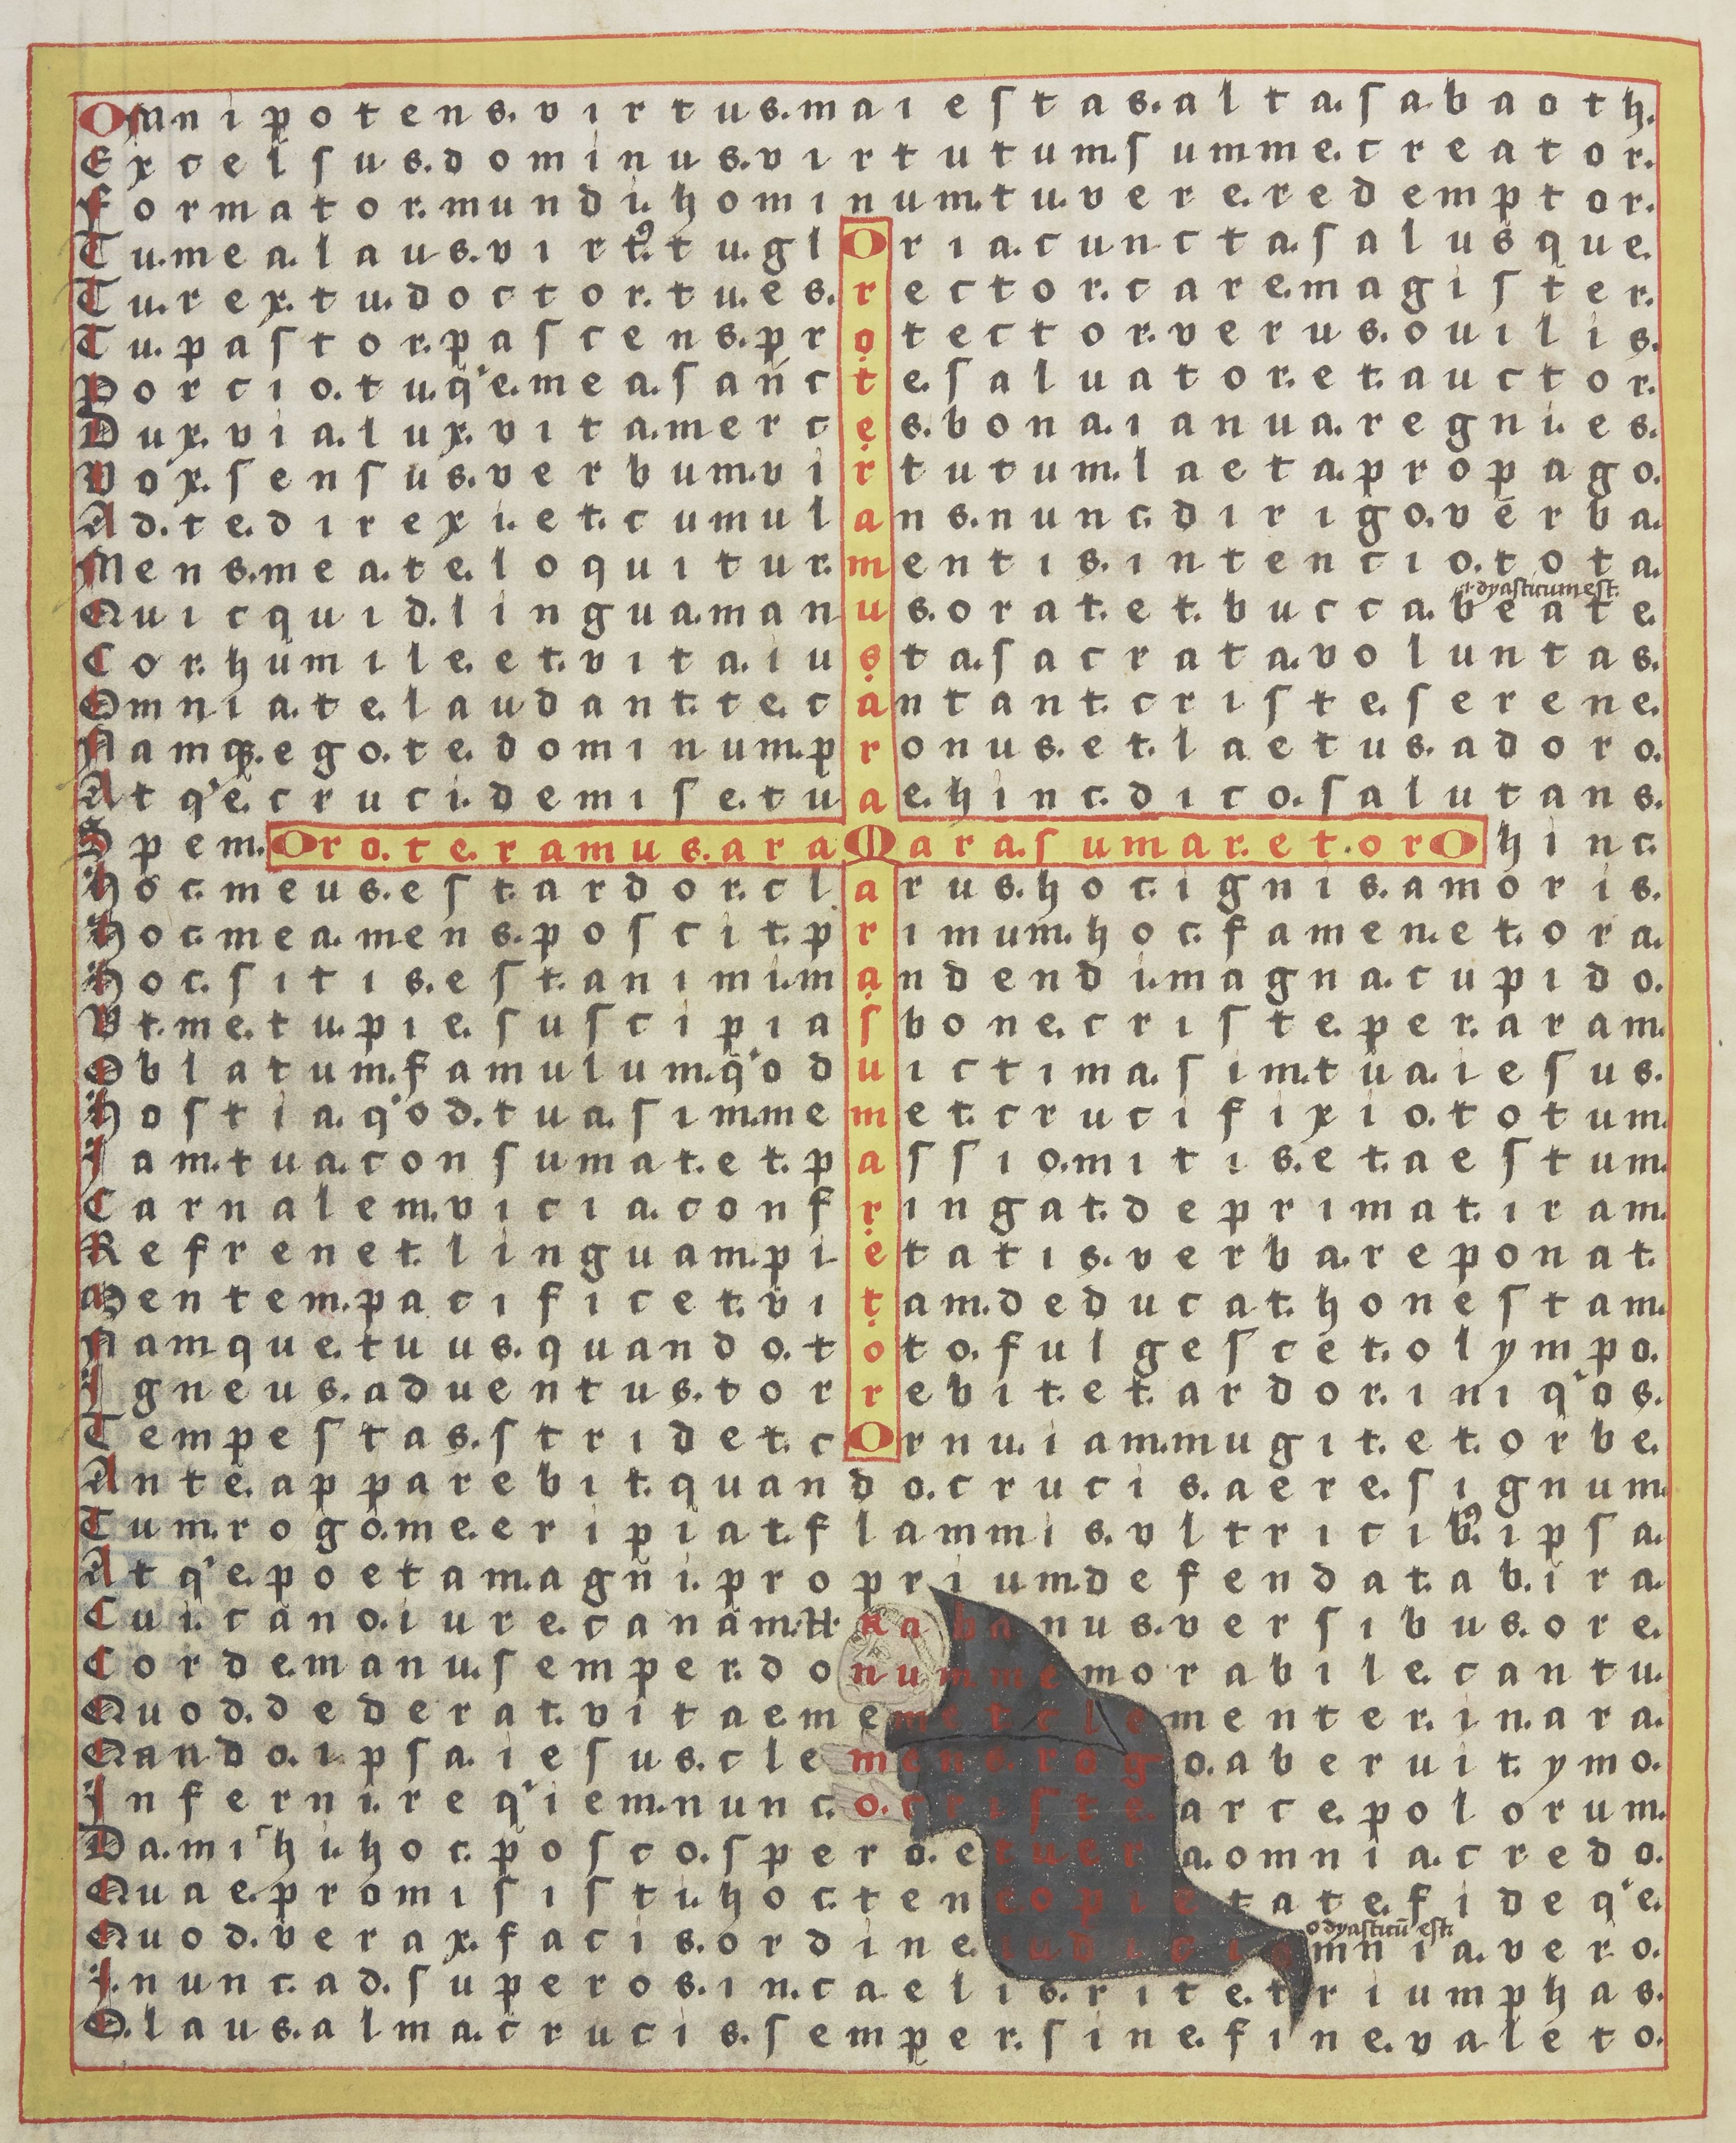 Omnipotens. virtus. maiestas. alta. sabaoth.
Excelsus. dominus. virtutum. summe. creator.
Formator. mundi. hominum. tu. vere. redemptor.
Tu. mea. laus. virtꝰ. tu. glOria. cuncta. salusque.
Tu. rex. tu. doctor. tu. es. rector. care. magister.
Tu. pastor. pascens. protector. verus. ouilis.
Porcio. tu. q'e. mea. sancte. saluator. et. auctor.
Dux. via. lux. vita. merces. bona. ianua. regni. es.
Vox. sensus. verbum. virtutum. laeta. propago.
Ad. te. direxi. et. cumulans. nunc. dirigo. verba.
Mens. mea. te. loquitur. mentis. intencio. tota.
dyasticum est.
Quicquid. lingua. manus. orat. et. bucca. beate.
Cor. humile. et. vita. iusta. sacrata. voluntas.
Omnia. te. laudant. te. cantant. criste. serene.
Namqꝫ. ego. te. dominum. pronus. et. laetus. adoro.
At q'e. cruci. de mise. tuae. hinc. dico. salutans.
Spem. Oro. te. ramus. ara Mara ara. sumar. et. orO hinc.
Hoc. meus. est. ardor. clarus. hoc. ignis. amoris.
Hoc. mea. mens. poscit. primum. hoc. famen. et. ora.
Hoc. sitis. est. animi. mandendi. magna. cupido.
Vt. me. tu. pie. suscipias bone. criste. per. aram.
Oblatum. famulum. q'od uictima. sim. tua. iesus.
Hostia. q'od. tua. sim. me met. crucifixio. totum.
Iam. tua. consumat. et. passio. mitis. et. aestum.
Carnalem. vicia. confringat. deprimat. iram.
Refrenet. linguam. pietatis. verba. reponat.
Mentem. pacificet. vitam. deducat. honestam.
Namque. tuus. quando. toto. fulgescet. olympo.
Igneus. aduentus. torrebit. et. ardor. iniq'os.
Tempestas. stridet. cOrnu. iam. mugit. et. orbe.
Ante. apparebit. quando. crucis. aere. signum.
Tum. rogo. me. eripiat. flammis. vltricibꝰ. ipsa.
At q'e. poetam. agni. proprium. defendat. ab. ira.
Cui. cano. iure. canam. Hrabanus. versibus. ore.
Corde. manu. semper. donum memorabile. cantu.
Quod. dederat. vitae me met clementer. in. ara.
Qando. ipsa. iesus. clemens. rogo. ab eruit. ymo.
Inferni. req'iem. nunc. o. criste. arce. polorum.
Da. mihi. hoc. posco. spero. et uera. omnia. credo.
Quae. promisisti. hoc. teneo pietate. fideq'e.
odyasticū est.
Quod. verax. facis. ordine. iudicis mnia. vero.
I. nunc. ad. superos. in. caelis. rite. triumphas.
O. laus. alma. crucis. semper. sine. fine. valeto.